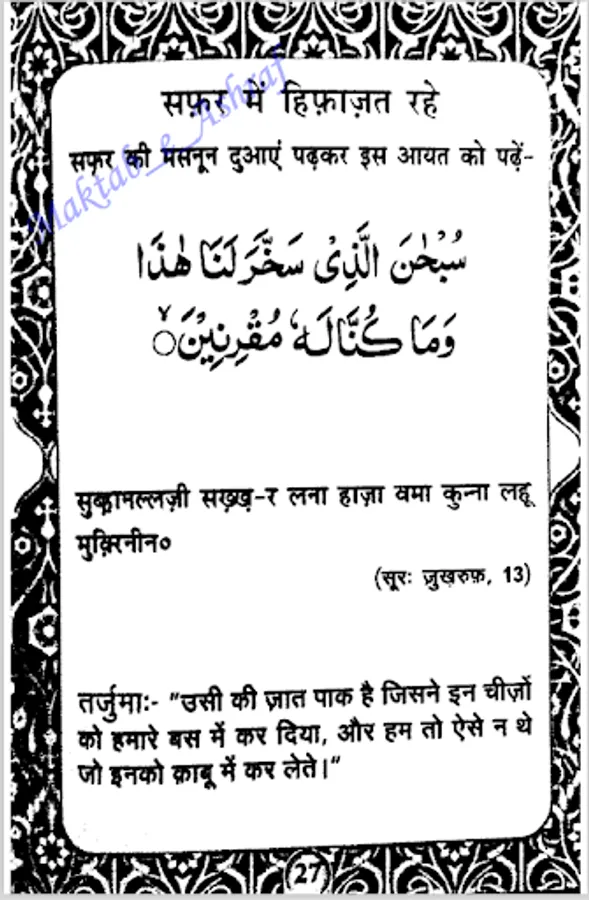 सफ़र में हिफ़ाज़त रहे
सफ़र की मसनून दुआएं पढ़कर इस आयत को पढ़ें-
Maktab_e_Ashraf
سُبْحٰنَ الَّذِیْ سَخَّرَ لَنَا هٰذَا
وَمَا كُنَّا لَهٗ مُقْرِنِیْنَ ۙ
सुब्हानल्लज़ी सख़्ख़-र लना हाज़ा वमा कुन्ना लहू
मुक़्रिनीन०
(सूरः ज़ुख़रुफ़, 13)
तर्जुमाः- “उसी की ज़ात पाक है जिसने इन चीज़ों
को हमारे बस में कर दिया, और हम तो ऐसे न थे
जो इनको क़ाबू में कर लेते।”
27